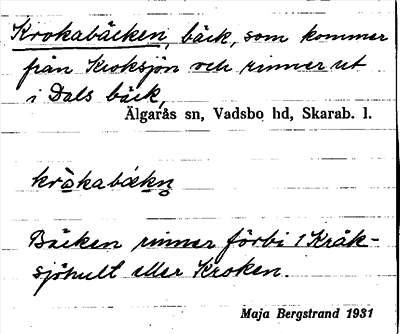 Krokabäcken, bäck, som kommer
från Kroksjön och rinner ut
i Dals bäck,
Älgarås sn, Vadsbo hd, Skarab. l.
kròkabäkn̥
Bäcken rinner förbi 1 Kråk-
sjöhult eller Kroken.
Maja Bergstrand 1931